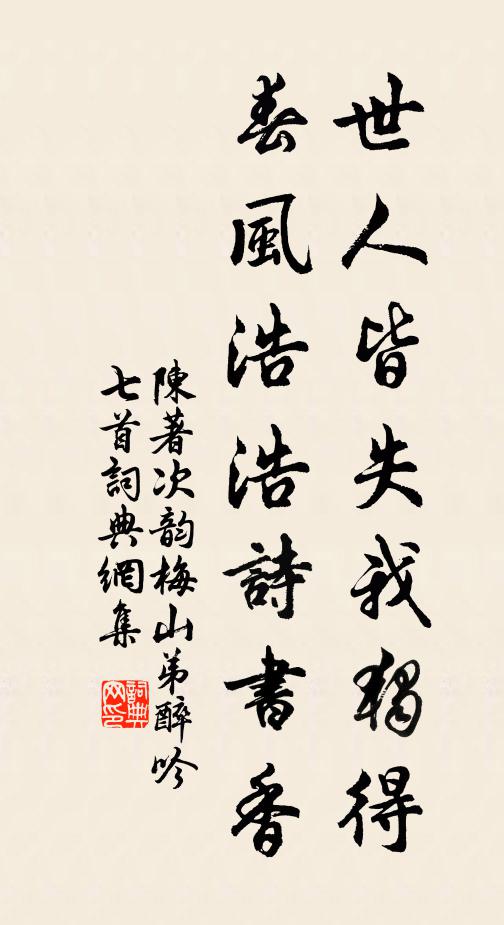 世人皆失我獨得
春風浩浩詩書香
陳著次韵梅山弟醉吟
七首詞典網集
詞典
网印